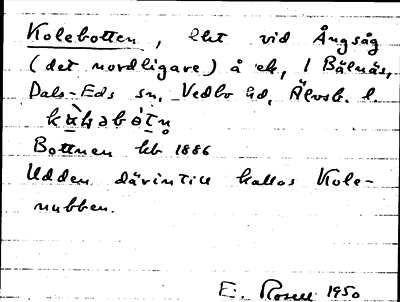 Kolebotten, lht vid Ångsåg
(det nordligare) å ek, 1 Bälnäs,
Dals-Eds sn, Vedbo hd, Älvsb. l.
Bottnen bb 1886
Udden därintill kallas Kole-
nubben.
E. Rosell 1950